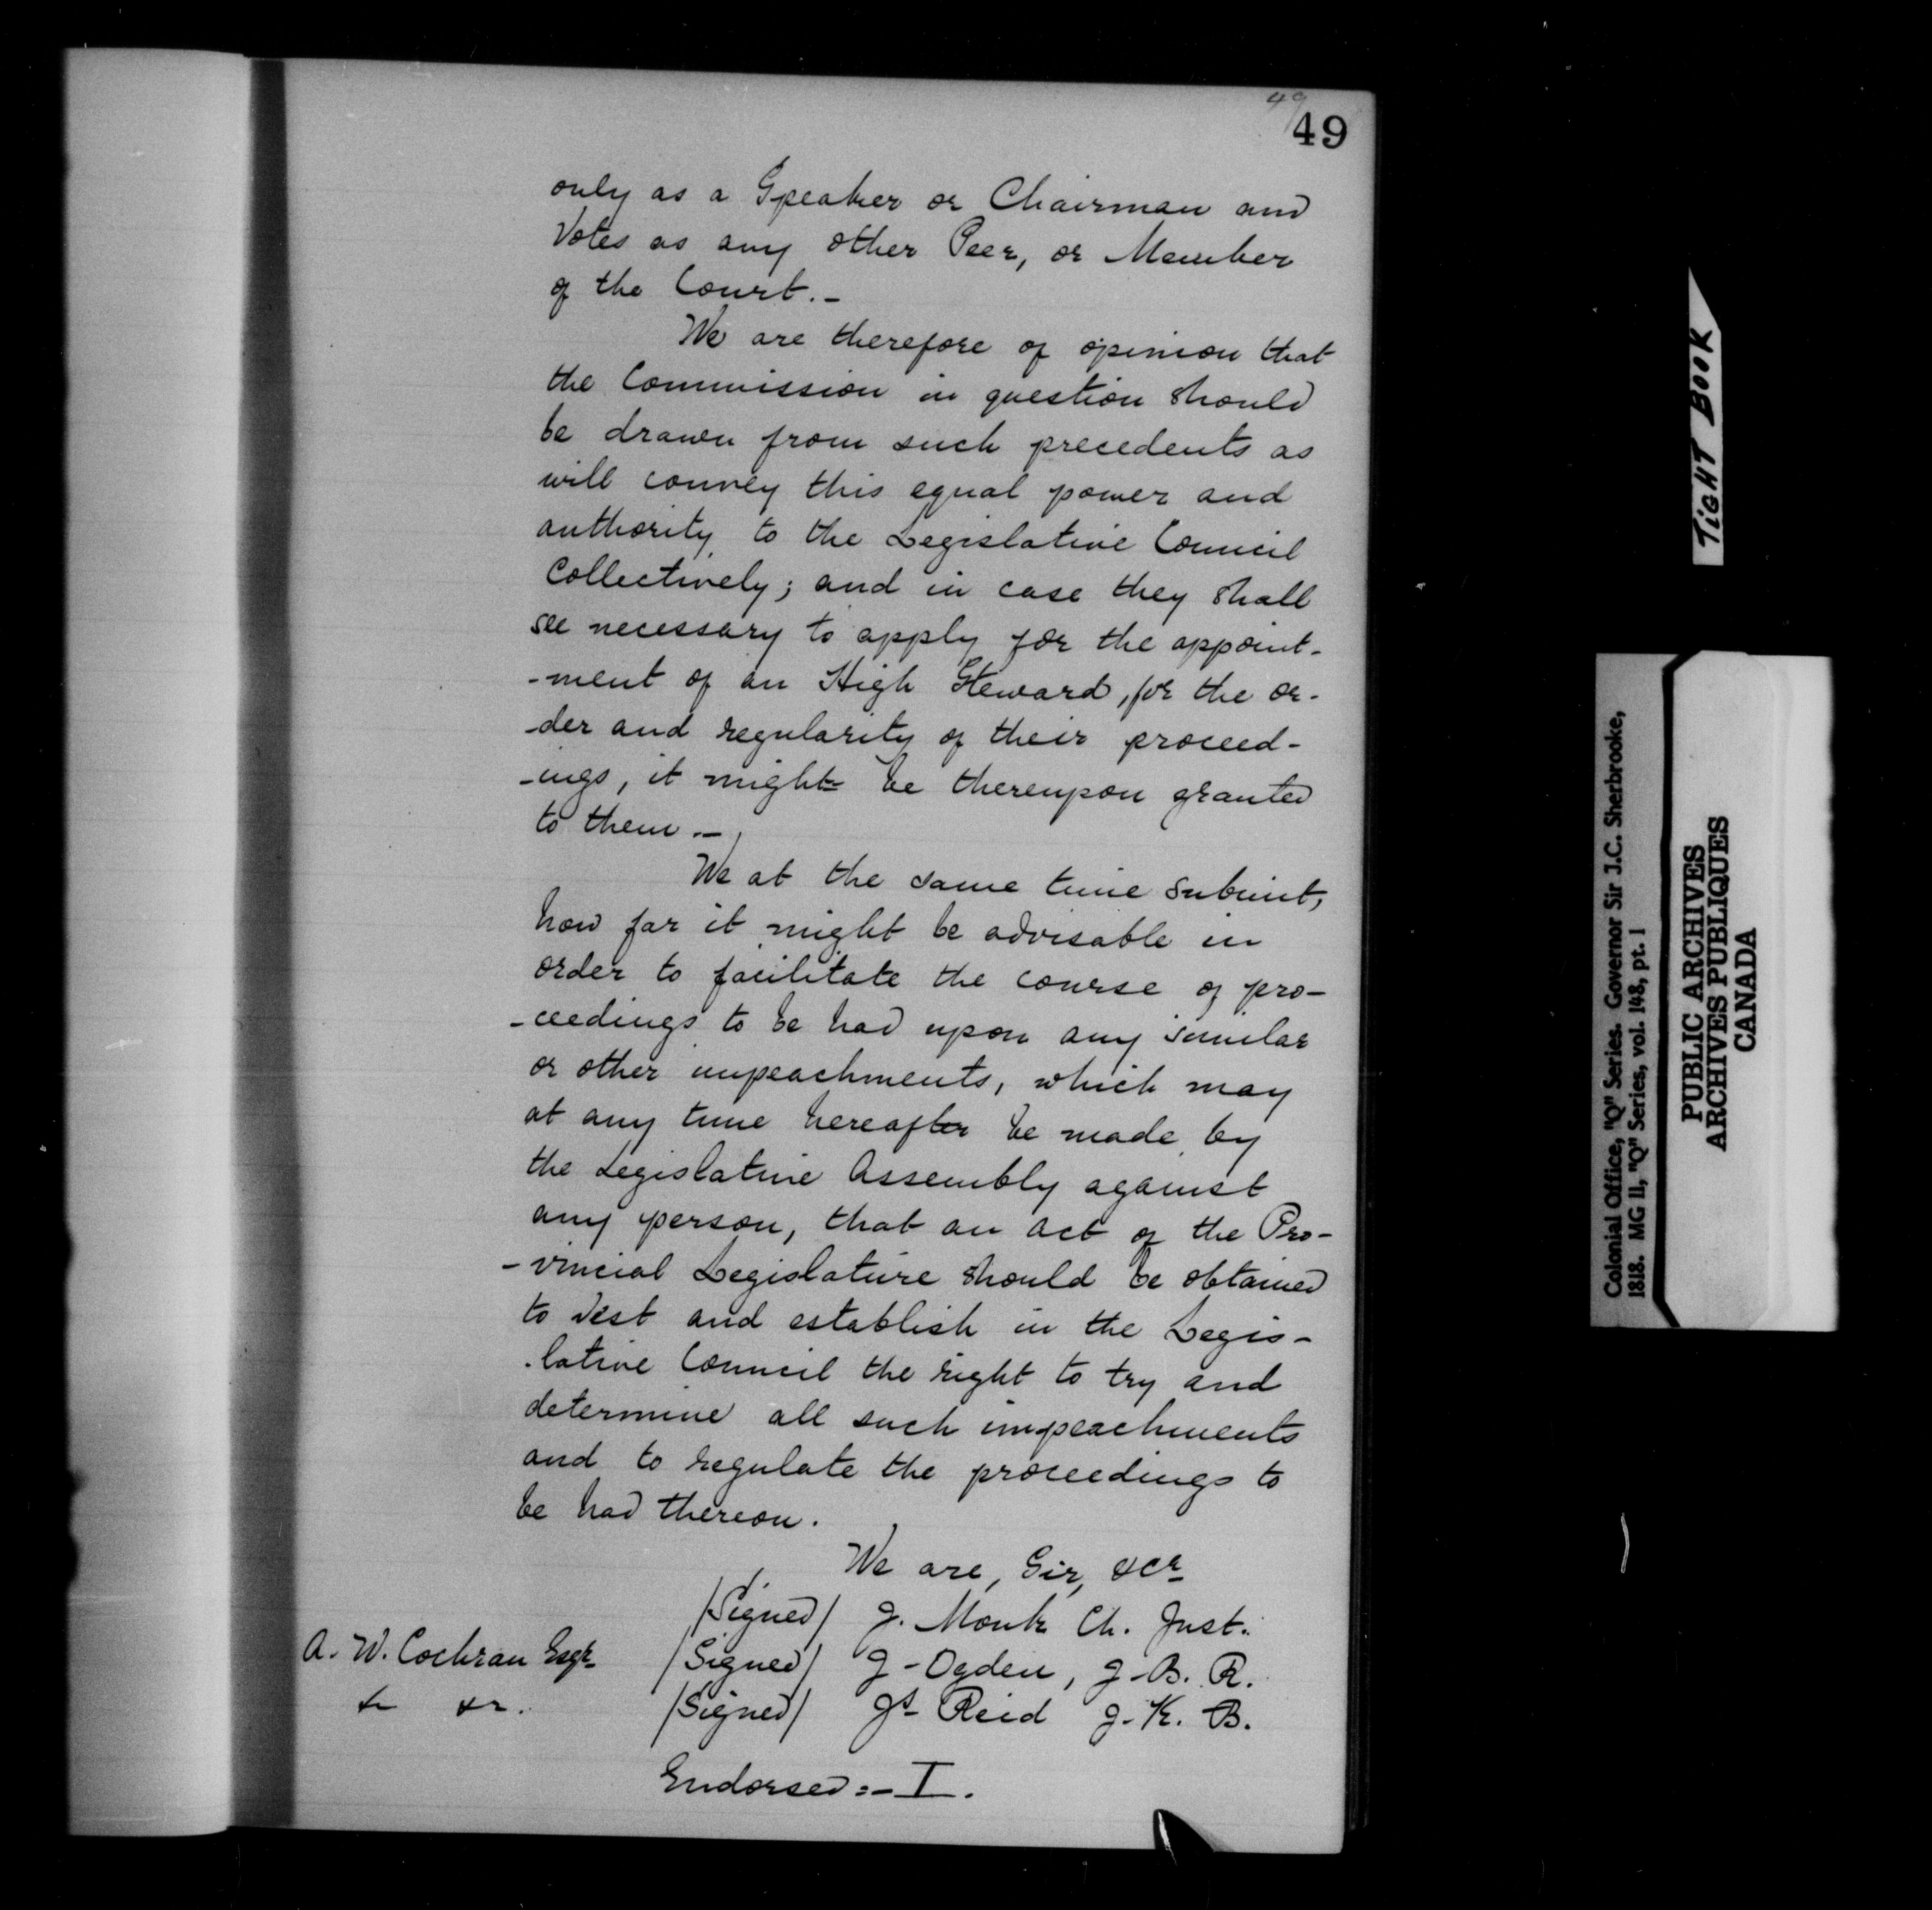 49
49
only as a Speaker or Chairman and
Votes as any other Peer, or Member
of the Court.-
We are therefore of opinion that
the Commission in question should
be drawn from such precedents as
will convey this equal power and
authority to the Legislative Council
Collectively; and in case they shall
see necessary to apply for the appoint-
-ment of an High Steward, for the or-
-der and regularity of their proceed-
-ings, it might be thereupon granted
to them.-
We at the same time submit,
how far it might be advisable in
order to facilitate the course of pro-
-ceedings to be had upon any similar
or other impeachments, which may
at any time hereafter be made by
the Legislative Assembly against
any person, that an act of the Pro-
-vincial Legislature should be obtained
to vest and establish in the Legis-
-lative Council the right to try and
determine all such impeachments
and to regulate the proceedings to
be had thereon.
We are, Sir, &ca
/Signed/ J. Monk Ch. Just.
A. W. Cochran Esqr /Signed/ J-Ogden, J-B. R.
&c &c. /Signed/ Js Reid J. K. B.
Endorsed:- I.
TIGHT BOOK
Colonial Office, "Q" Series. Governor Sir J.C. Sherbrooke,
1818. MG 11, "Q" Series, vol. 148, pt. 1
PUBLIC ARCHIVES
ARCHIVES PUBLIQUES
CANADA